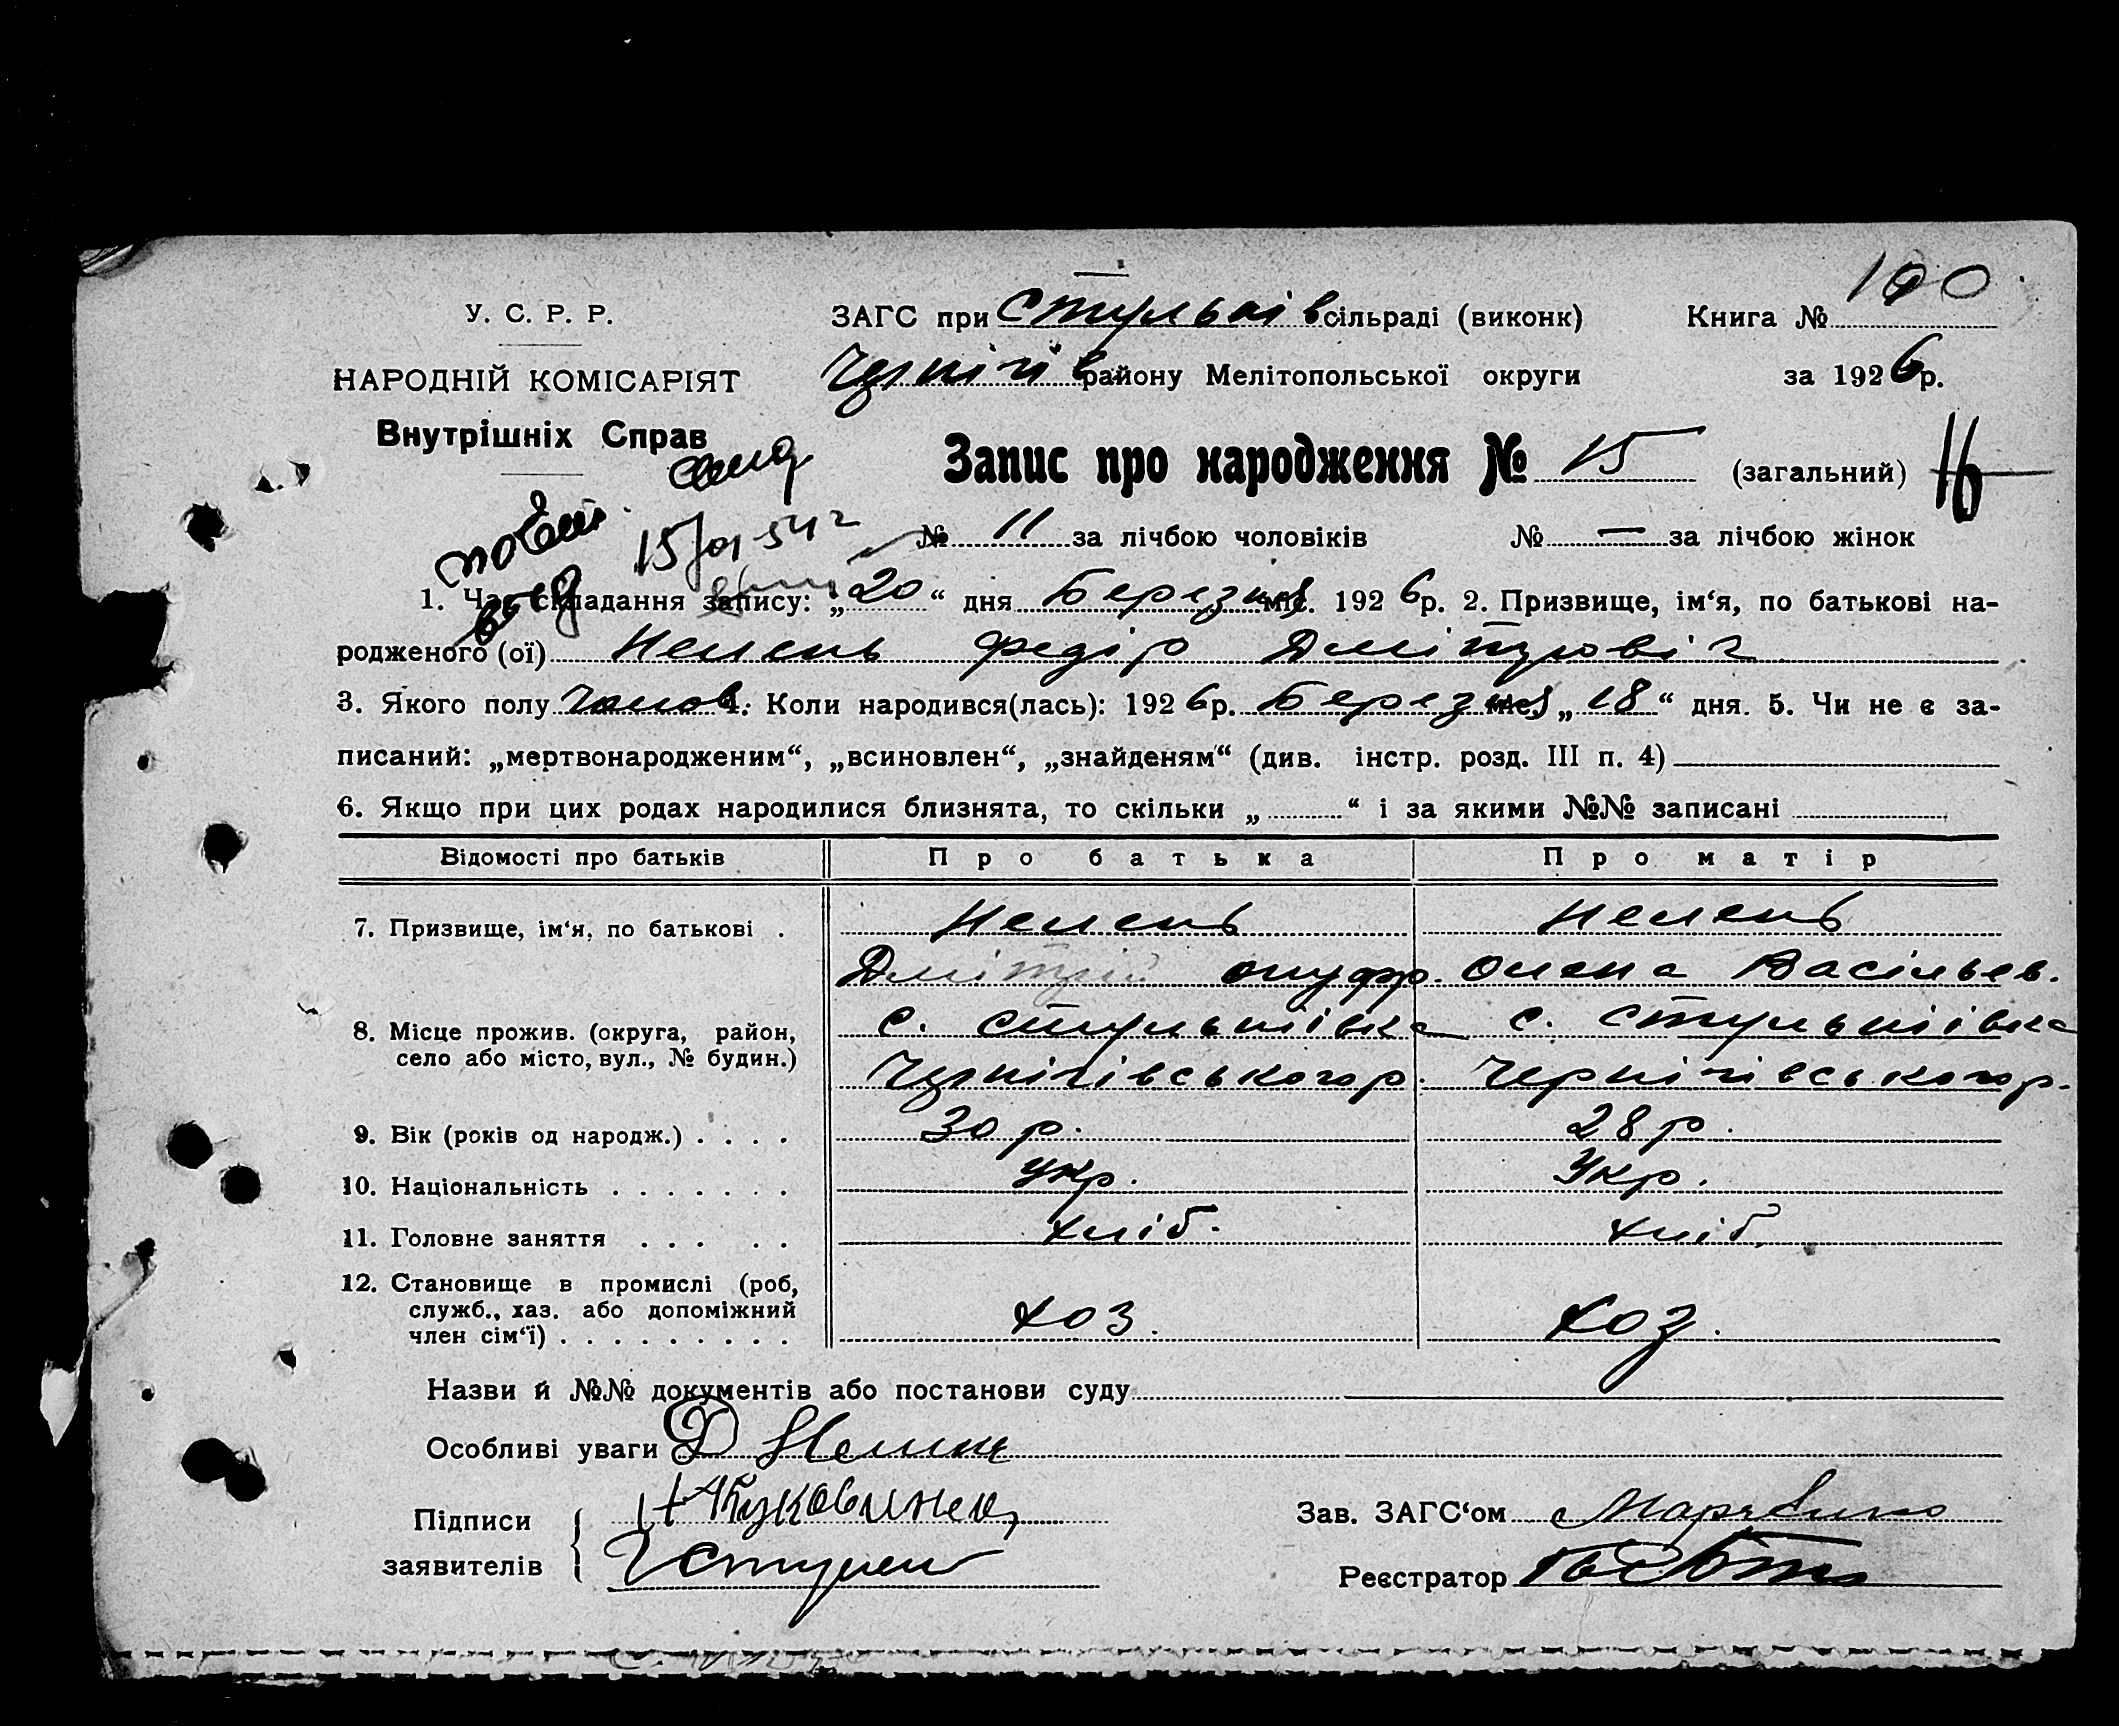 100
У. С. Р. Р.
ЗАГС при Стульнів сільраді (виконк)
Книга №
НАРОДНІЙ КОМІСАРІЯТ
Чернігів району Мелітопольської округи
за 1926 р.
Внутрішніх Справ
Запис про народження № 15 (загальний) 16
№ 11 за лічбою чоловіків № — за лічбою жінок
1. Час складання запису: „20“ дня Березня міс. 1926 р. 2. Призвище, ім‘я, по батькові на-
родженого (ої) Немень Федір Дмітрович
3. Якого полу чолов. 4. Коли народився(лась): 1926 р. Березня міс. „18“ дня. 5. Чи не є за-
писаний: „мертвонародженим“, „всиновлен“, „знайденям“ (див. інстр. розд. III п. 4)
6. Якщо при цих родах народилися близнята, то скільки „ “ і за якими №№ записані
Відомості про батьків Про батька Про матір
7. Призвище, ім‘я, по батькові . Немень Немень
Дмітрій Онуфр. Олена Васільев.
8. Місце прожив. (округа, район, с. Стульнівка с. Стульнівка
село або місто, вул., № будин.) Чернігівського р. Чернігівського р.
9. Вік (років од народж.) . . . . 30 р. 28 р.
10. Національність . . . . . . . Укр. Укр.
11. Головне заняття . . . . . хліб. хліб.
12. Становище в промислі (роб,
служб., хаз. або допоміжний
член сім‘ї) . . . . . . . . . хоз. хоз.
Назви й №№ документів або постанови суду
Особливі уваги Д
Підписи
Зав. ЗАГС‘ом
заявителів
Реєстратор